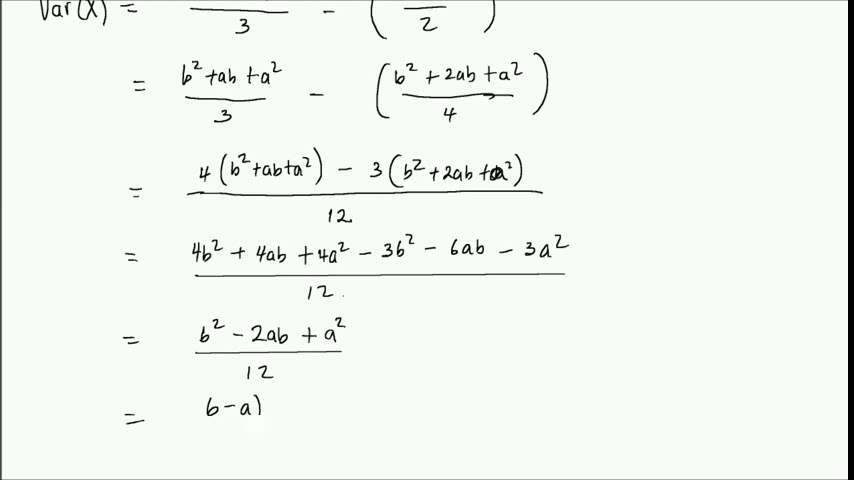 Var(X) = — 3 - ( — 2 )
= b² + ab + a² / 3 - ( b² + 2ab + a² / 4 )
= 4(b² + ab + a²) - 3(b² + 2ab + a²) / 12
= 4b² + 4ab + 4a² - 3b² - 6ab - 3a² / 12
= b² - 2ab + a² / 12
= b - a)